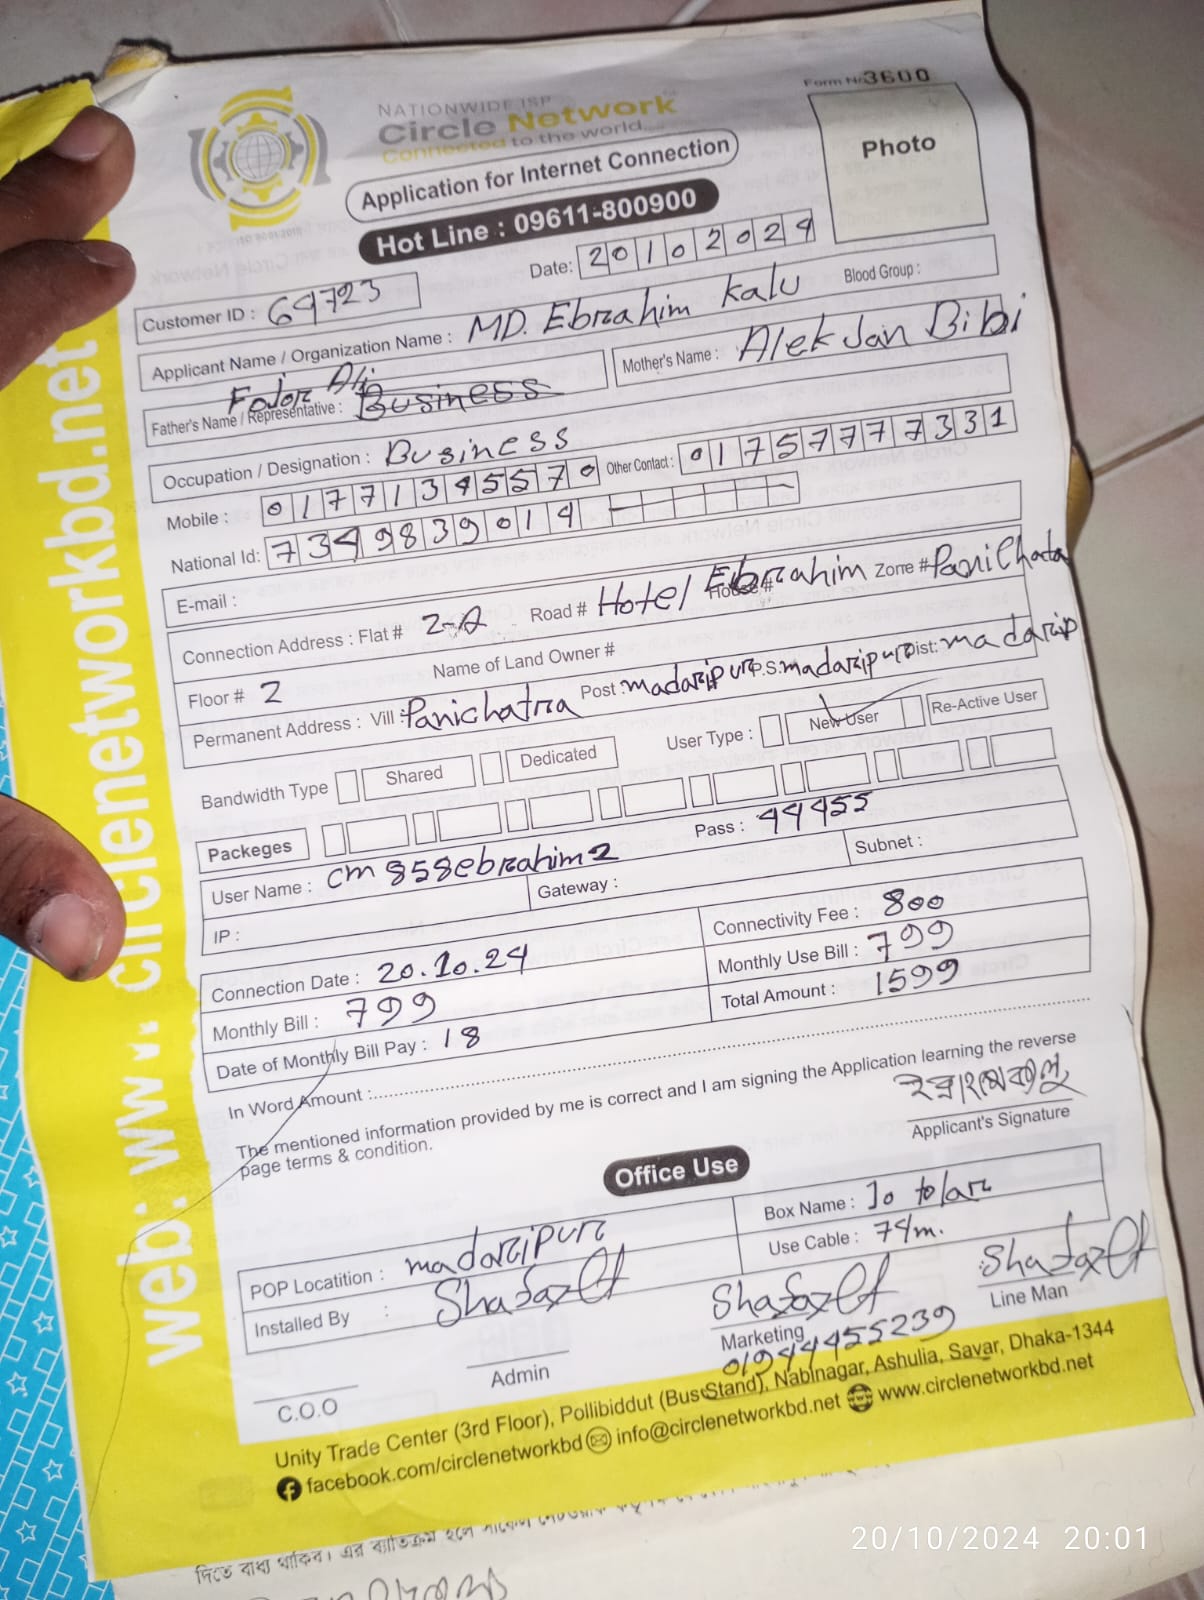 Form No 3600
NATIONWIDE ISP
Circle Network
Connected to the world....
Photo
Application for Internet Connection
Hot Line : 09611-800900
Date: 20102024
Customer ID : 64723
Blood Group :
Applicant Name / Organization Name : MD. Ebrahim Kalu
Mother's Name : Alek Jan Bibi
Father's Name / Representative : Fojor Ali Business
Occupation / Designation : Business
Mobile : 01771345570 Other Contact : 01757777331
National Id: 7349839014
E-mail :
Connection Address : Flat # 2-A Road # Hotel Ebrahim House # Zone # Panichata
Floor # 2 Name of Land Owner #
Permanent Address : Vill : Panichatra Post : madaripur P.S. madaripur Dist: madarip
Bandwidth Type Shared Dedicated User Type : New User Re-Active User
Packeges
User Name : cm858ebrahim2 Pass : 44455
IP : Gateway : Subnet :
Connection Date : 20.10.24 Connectivity Fee : 800
Monthly Bill : 799 Monthly Use Bill : 799
Date of Monthly Bill Pay : 18 Total Amount : 1599
In Word Amount :
The mentioned information provided by me is correct and I am signing the Application learning the reverse
page terms & condition.
Applicant's Signature
Office Use
POP Locatition : madaripur Box Name : Jo tolar
Installed By : Use Cable : 74m.
Marketing
Line Man
01944455239
Admin
C.O.O
Unity Trade Center (3rd Floor), Pollibiddut (Bus Stand), Nabinagar, Ashulia, Savar, Dhaka-1344
facebook.com/circlenetworkbd info@circlenetworkbd.net www.circlenetworkbd.net
web: www.circlenetworkbd.net
দিতে বাধ্য থাকিব। এর ব্যতিক্রম হলে
20/10/2024 20:01